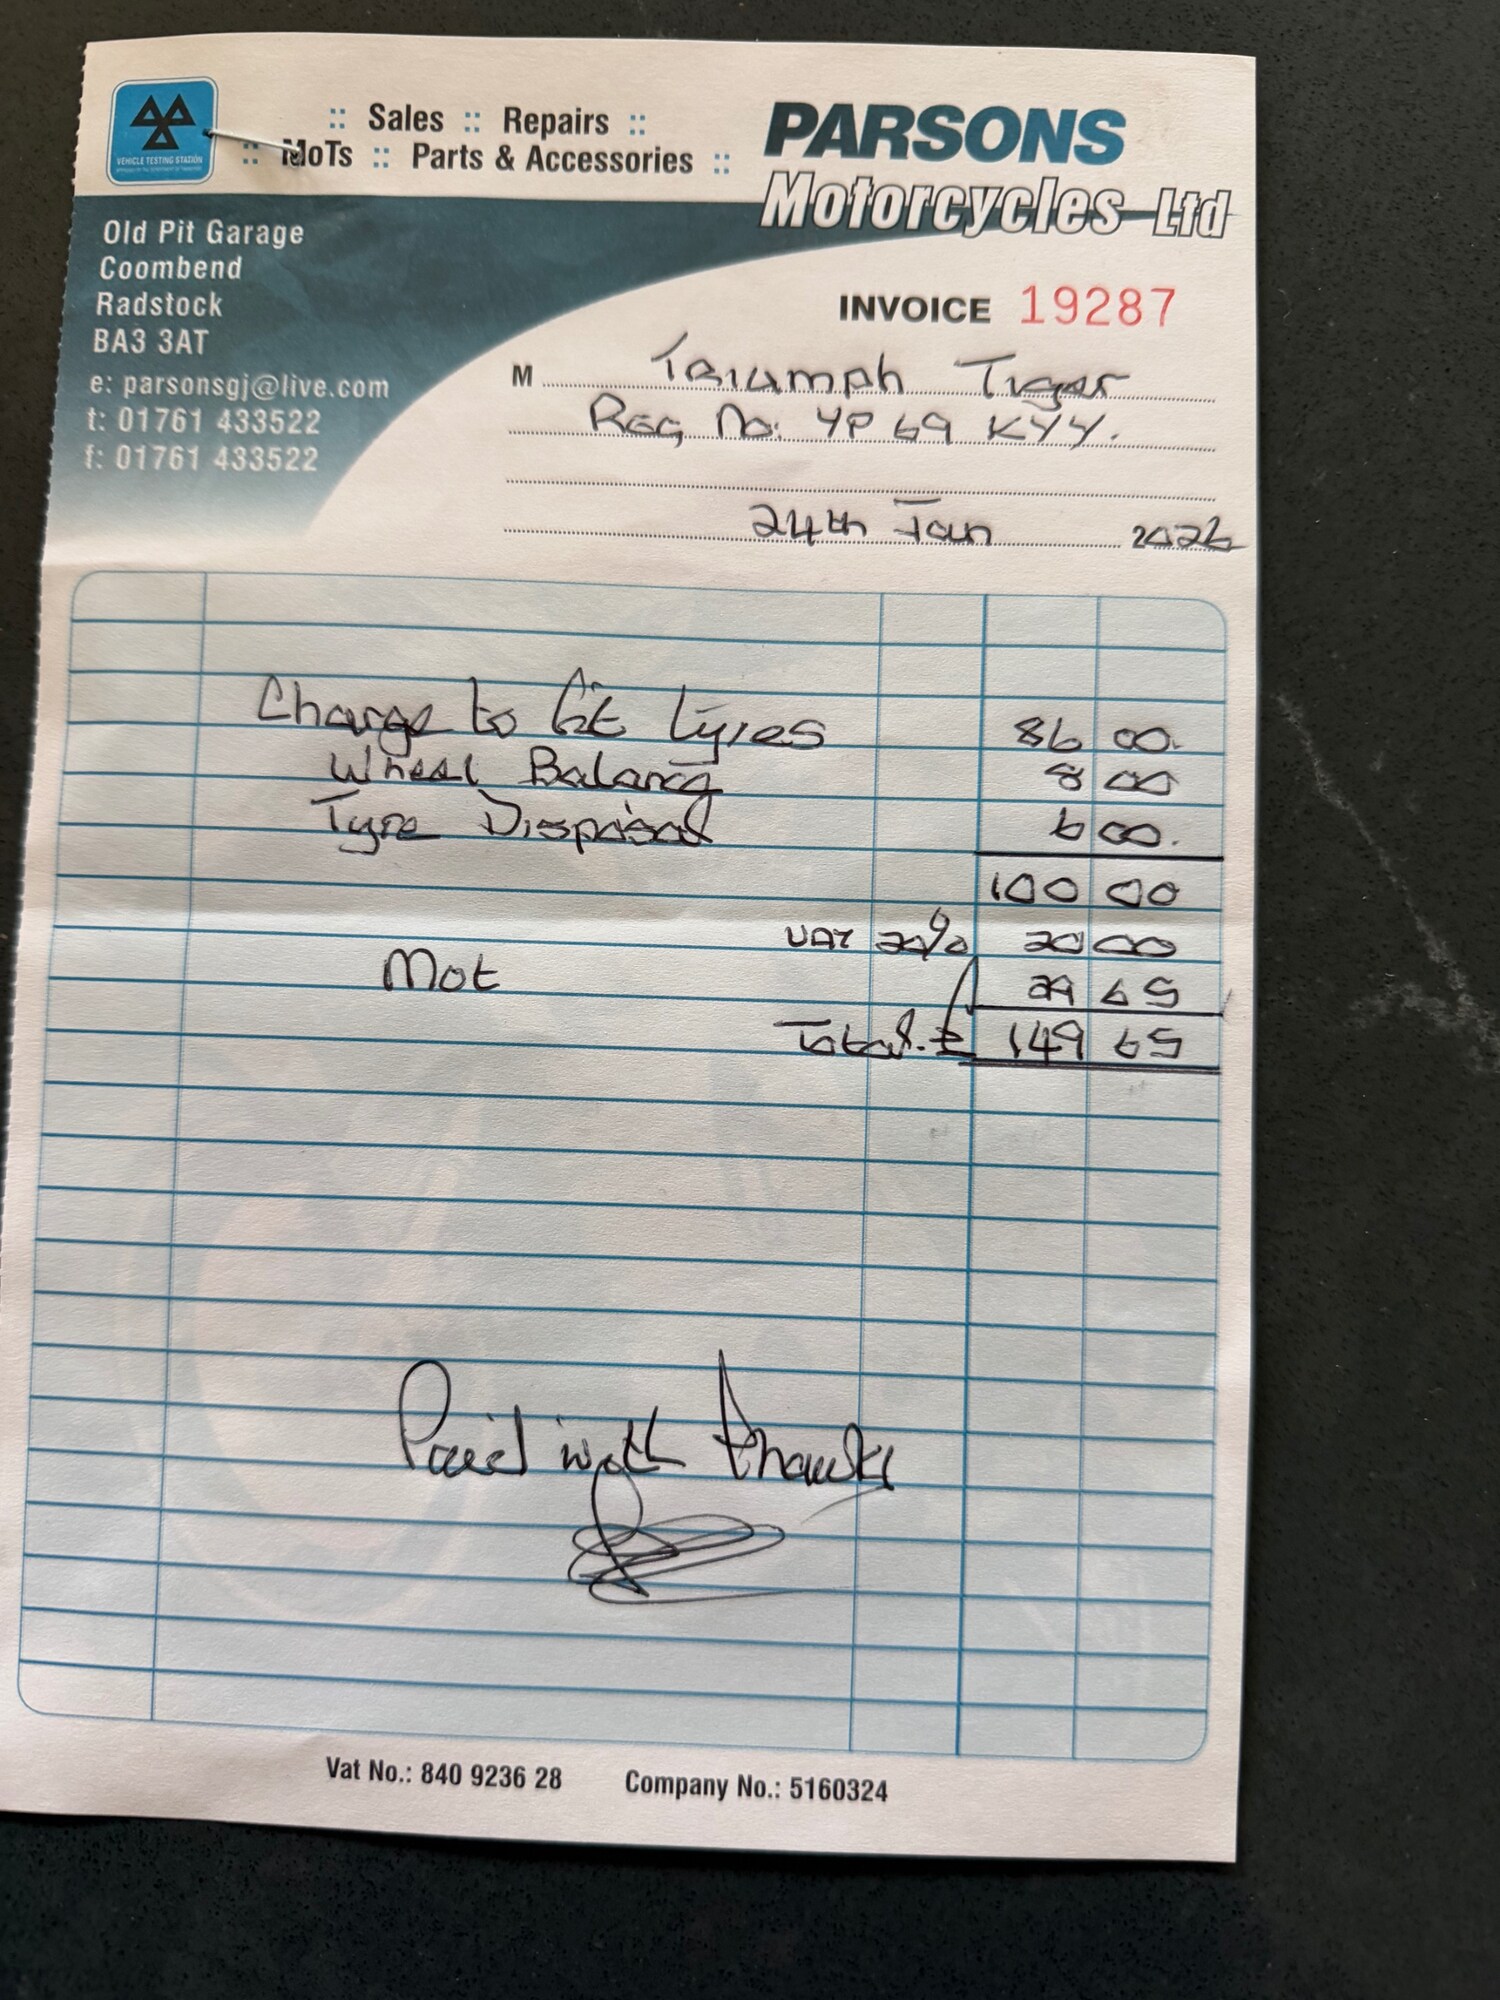 :: Sales :: Repairs ::
:: MoTs :: Parts & Accessories ::
VEHICLE TESTING STATION
PARSONS
Motorcycles Ltd
Old Pit Garage
Coombend
Radstock
BA3 3AT
e: parsonsgj@live.com
t: 01761 433522
f: 01761 433522
INVOICE 19287
M Triumph Tiger
Reg No: YP 69 KYY.
24th Jan 2026
Charge to fit tyres 86 00.
Wheel Balancg 8 00
Tyre Disposal 6 00.
100 00
VAT 20% 20 00
Mot 29 65
Total. £ 149 65
Paid with thanks
Vat No.: 840 9236 28 Company No.: 5160324